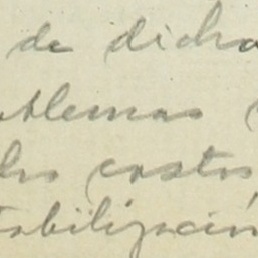 de dicho
oblemas
los costos
tabilización